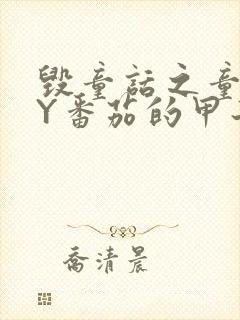 毁童话之童
Y番茄的甲
乔清晨